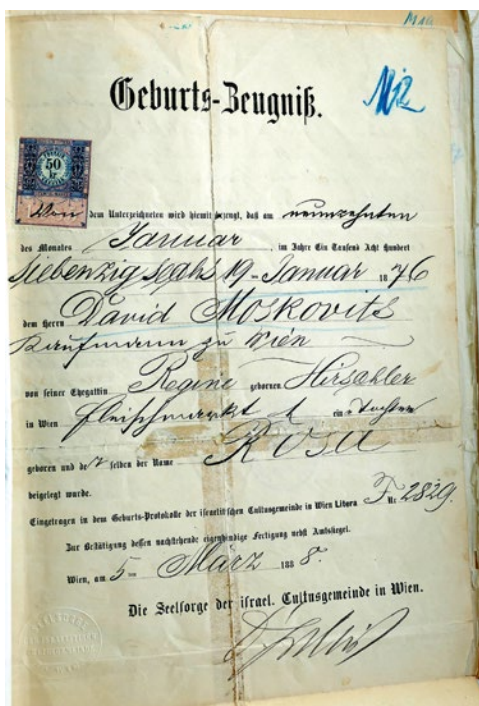 M19
Geburts-Zeugniß.
M2
50
kr
Von dem Unterzeichneten wird hiemit bezeugt, daß am neunzehnten
des Monates Januar, im Jahre Ein Tausend Acht Hundert
siebenzig sechs 19. Januar 1876
dem Herrn David Moskovits
Kaufmann zu Wien
von seiner Ehegattin Regine gebornen Hirschler
in Wien Fleischmarkt 1 eine Tochter
geboren und der selben der Name Rosa
beigelegt wurde.
Eingetragen in dem Geburts-Protokolle der israelitischen Cultusgemeinde in Wien Litera F. Nr. 2829.
Zur Bestätigung dessen nachstehende eigenhändige Fertigung nebst Amtssiegel.
Wien, am 5. März 1888.
Die Seelsorge der israel. Cultusgemeinde in Wien.